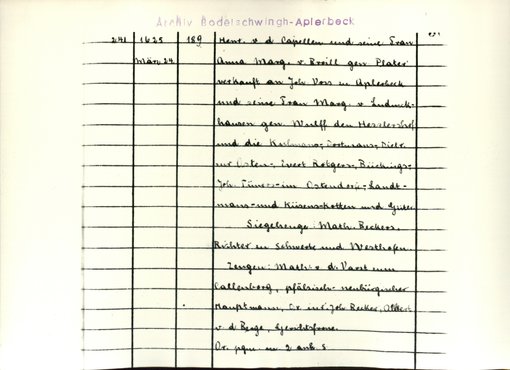 Archiv Bodelschwingh-Aplerbeck
241 1625 189 Henr. v d Capellen und seine Frau
März 24. Anna Marg. v Broill gen Plater
verkauft an Joh Voss in Aplerbeck
und seine Frau Marg. v Ludinck-
hausen gen. Wulff den Hesslershof
und die Dortmans-, Dietr.
zur Osten-, Evert Rotgers-, Bückings-,
Joh. im Ostendorp-, Landt-
mans- und Küsenskotten und Güter
Siegelzeuge: Math. Beckers,
Richter in Schwerte und Westhofen.
Zeugen: Math. v. d. Varst zum
Callenberg, pfälzisch-neuburgischer
Hauptmann, Dr. iur. Joh Becker, Albert
v d Berge, Gerichtsfrone.
Or. pgm. m 2 anh. S